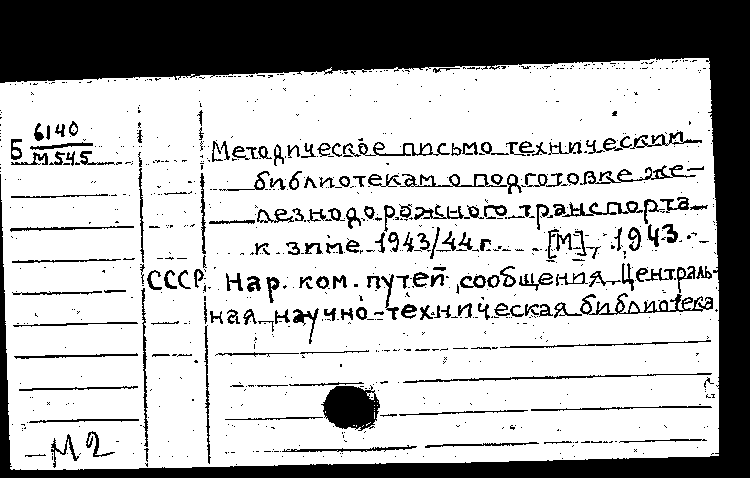 Б 6140
М 545
Методическое письмо техническим
библиотекам о подготовке же-
лезнодорожного транспорта
к зиме 1943/44 г. [М], 1943.
СССР Нар. ком. путей сообщения. Централь-
ная научно-техническая библиотека.
М2